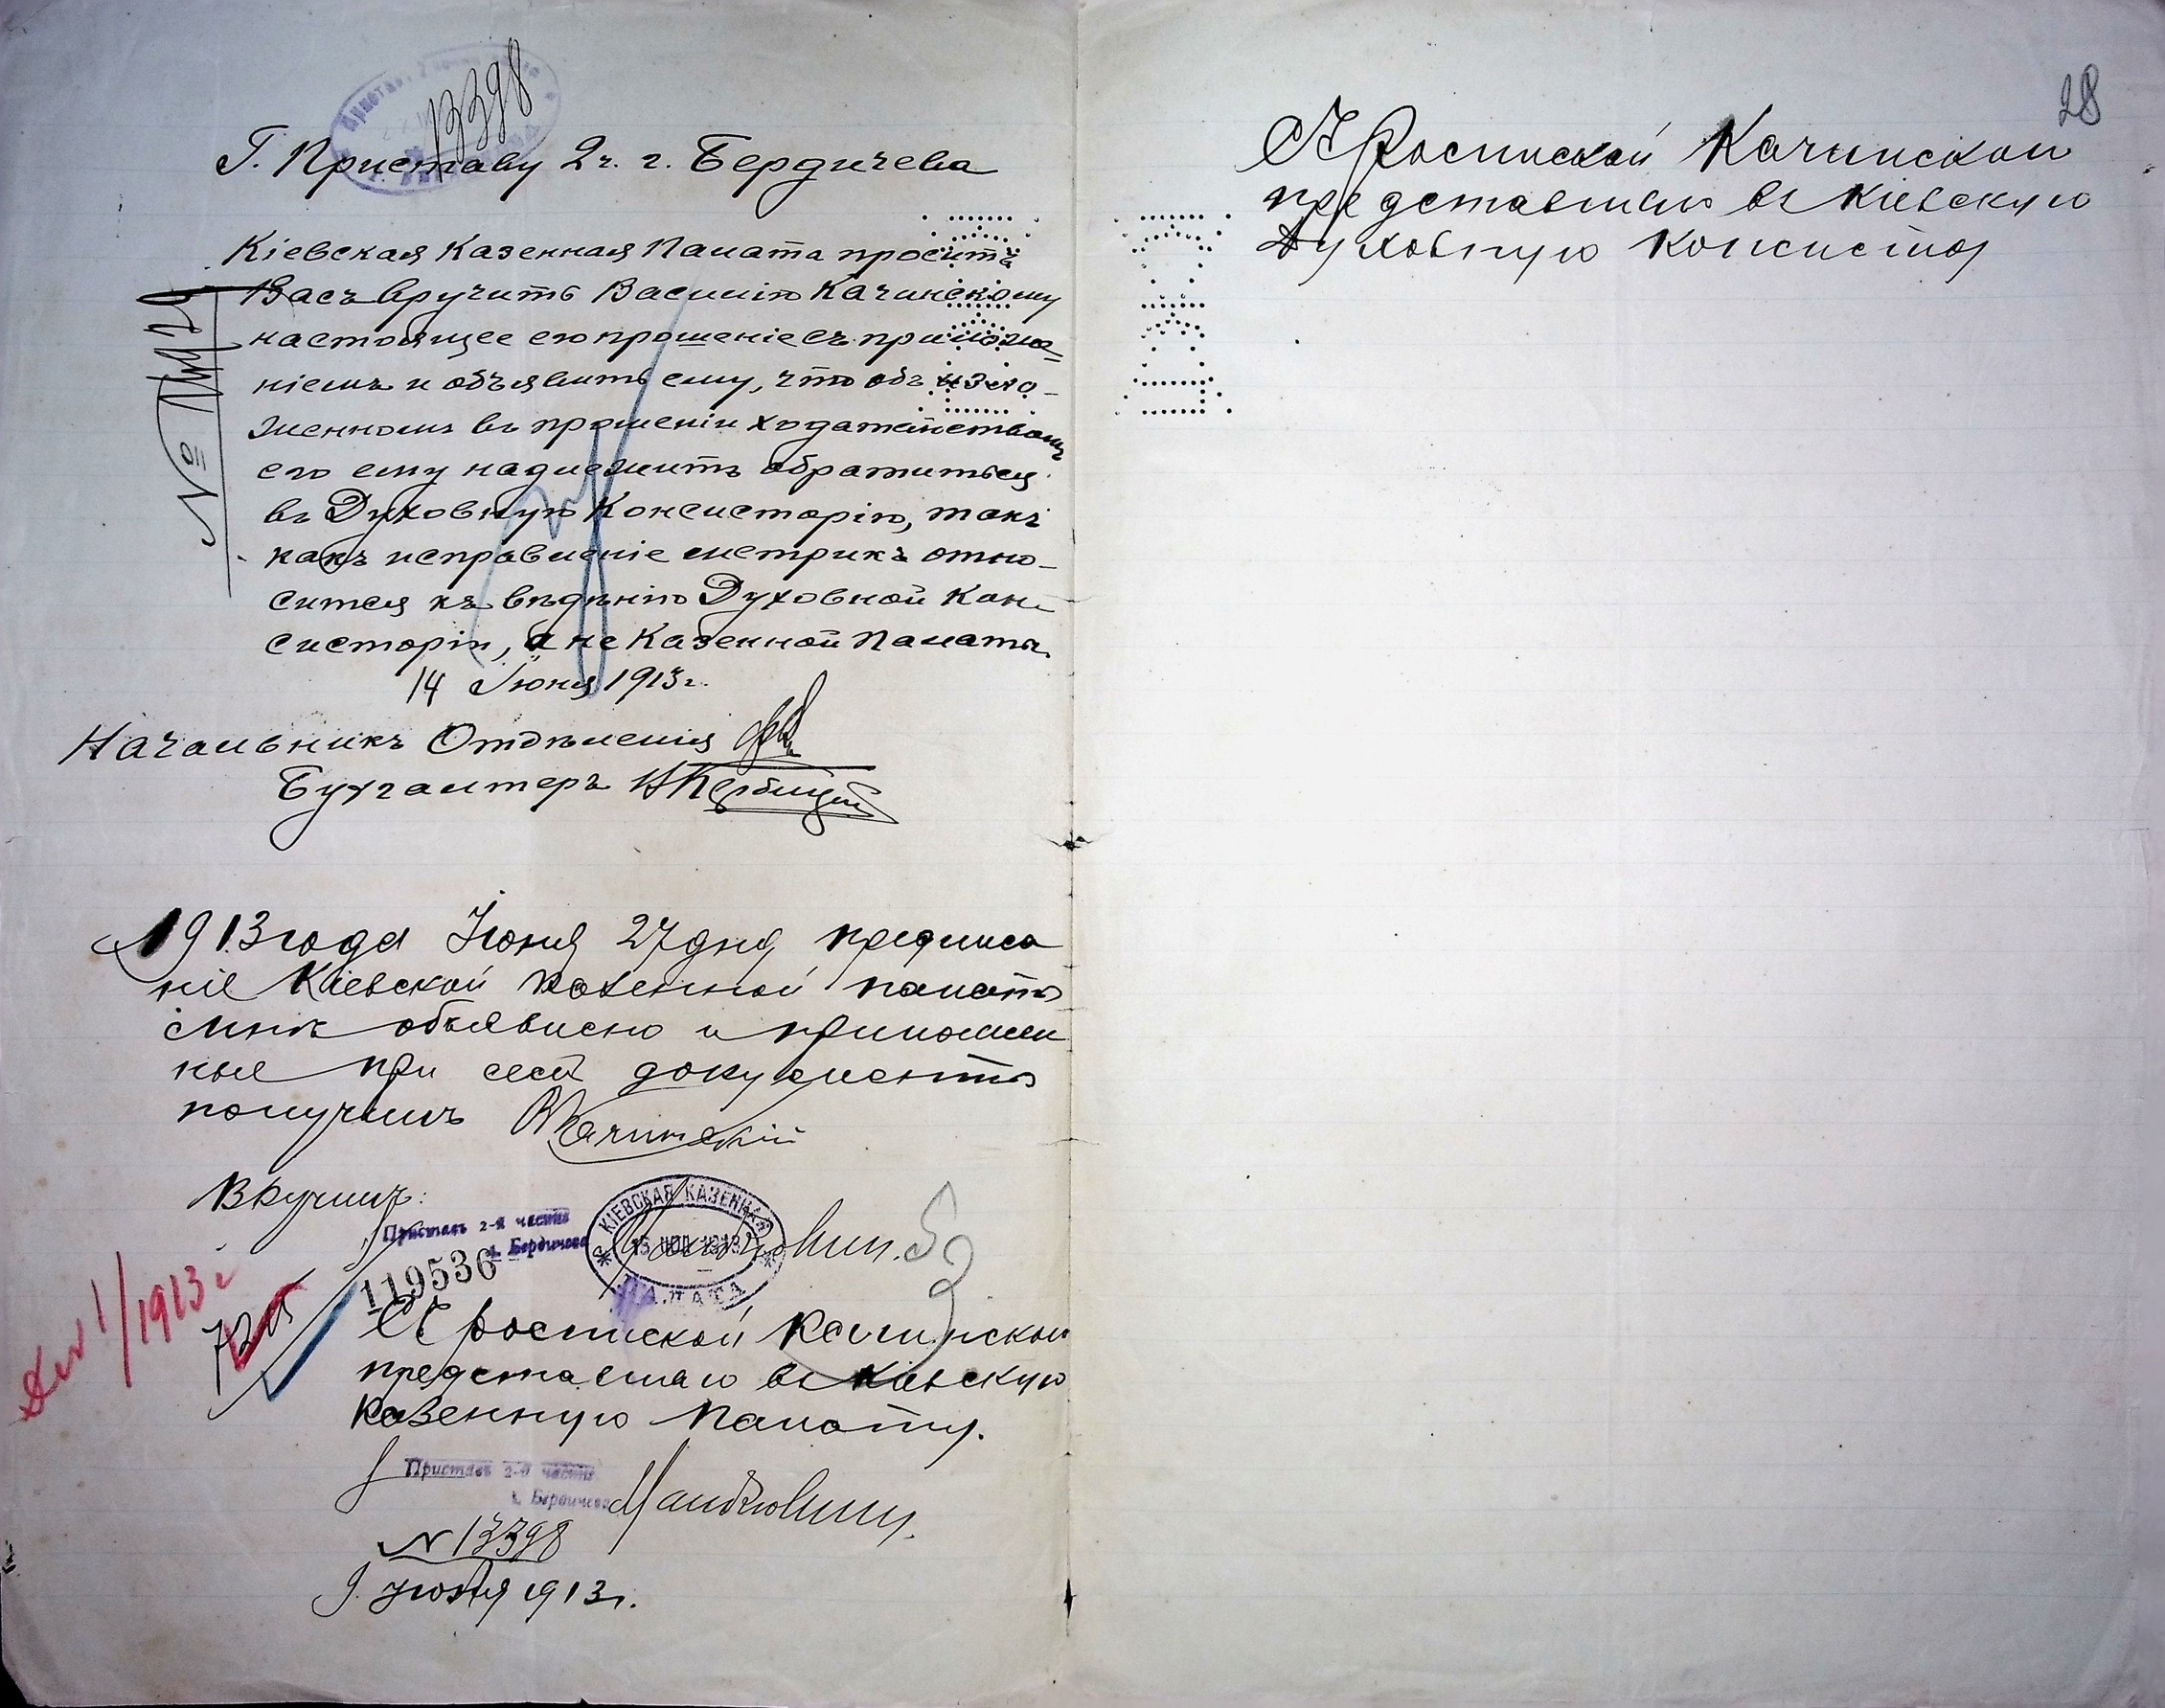 13398
Г. Приставу 2 ч. г. Бердичева
Кіевская Казенная Палата проситъ
Васъ вручить Василію Качинскому
настоящее его прошеніе съ приложе-
ніемъ и объявить ему, что объ изло-
женномъ въ прошеніи ходатайствомъ
его ему надлежитъ обратиться
въ Духовную Консисторію, такъ
какъ исправленіе метрикъ отно-
сится къ вѣдѣнію Духовной Кон-
систоріи, а не Казенной Палаты.
14 Іюня 1913 г.
№
Начальникъ Отдѣленія
Бухгалтеръ
1913 года Іюня 27 дня предписа
ніе Кіевской казенной палаты
мнѣ объявлено и приложен
ные при семъ документы
получилъ ВКачинскій
Вручилъ:
Приставъ 2-й части
г. Бердичева
КІЕВСКАЯ КАЗЕННАЯ
15 ІЮЛ 1913
ПАЛАТА
119536
1/1913 г
Съ роспиской Качинскаго
представляю въ Кіевскую
Казенную Палату.
Приставъ 2-й части
г. Бердичева
N 13398
9 июля 1913 г.
28
Съ Роспиской Качинскаго
представляю въ Кіевскую
Духовную Консистор